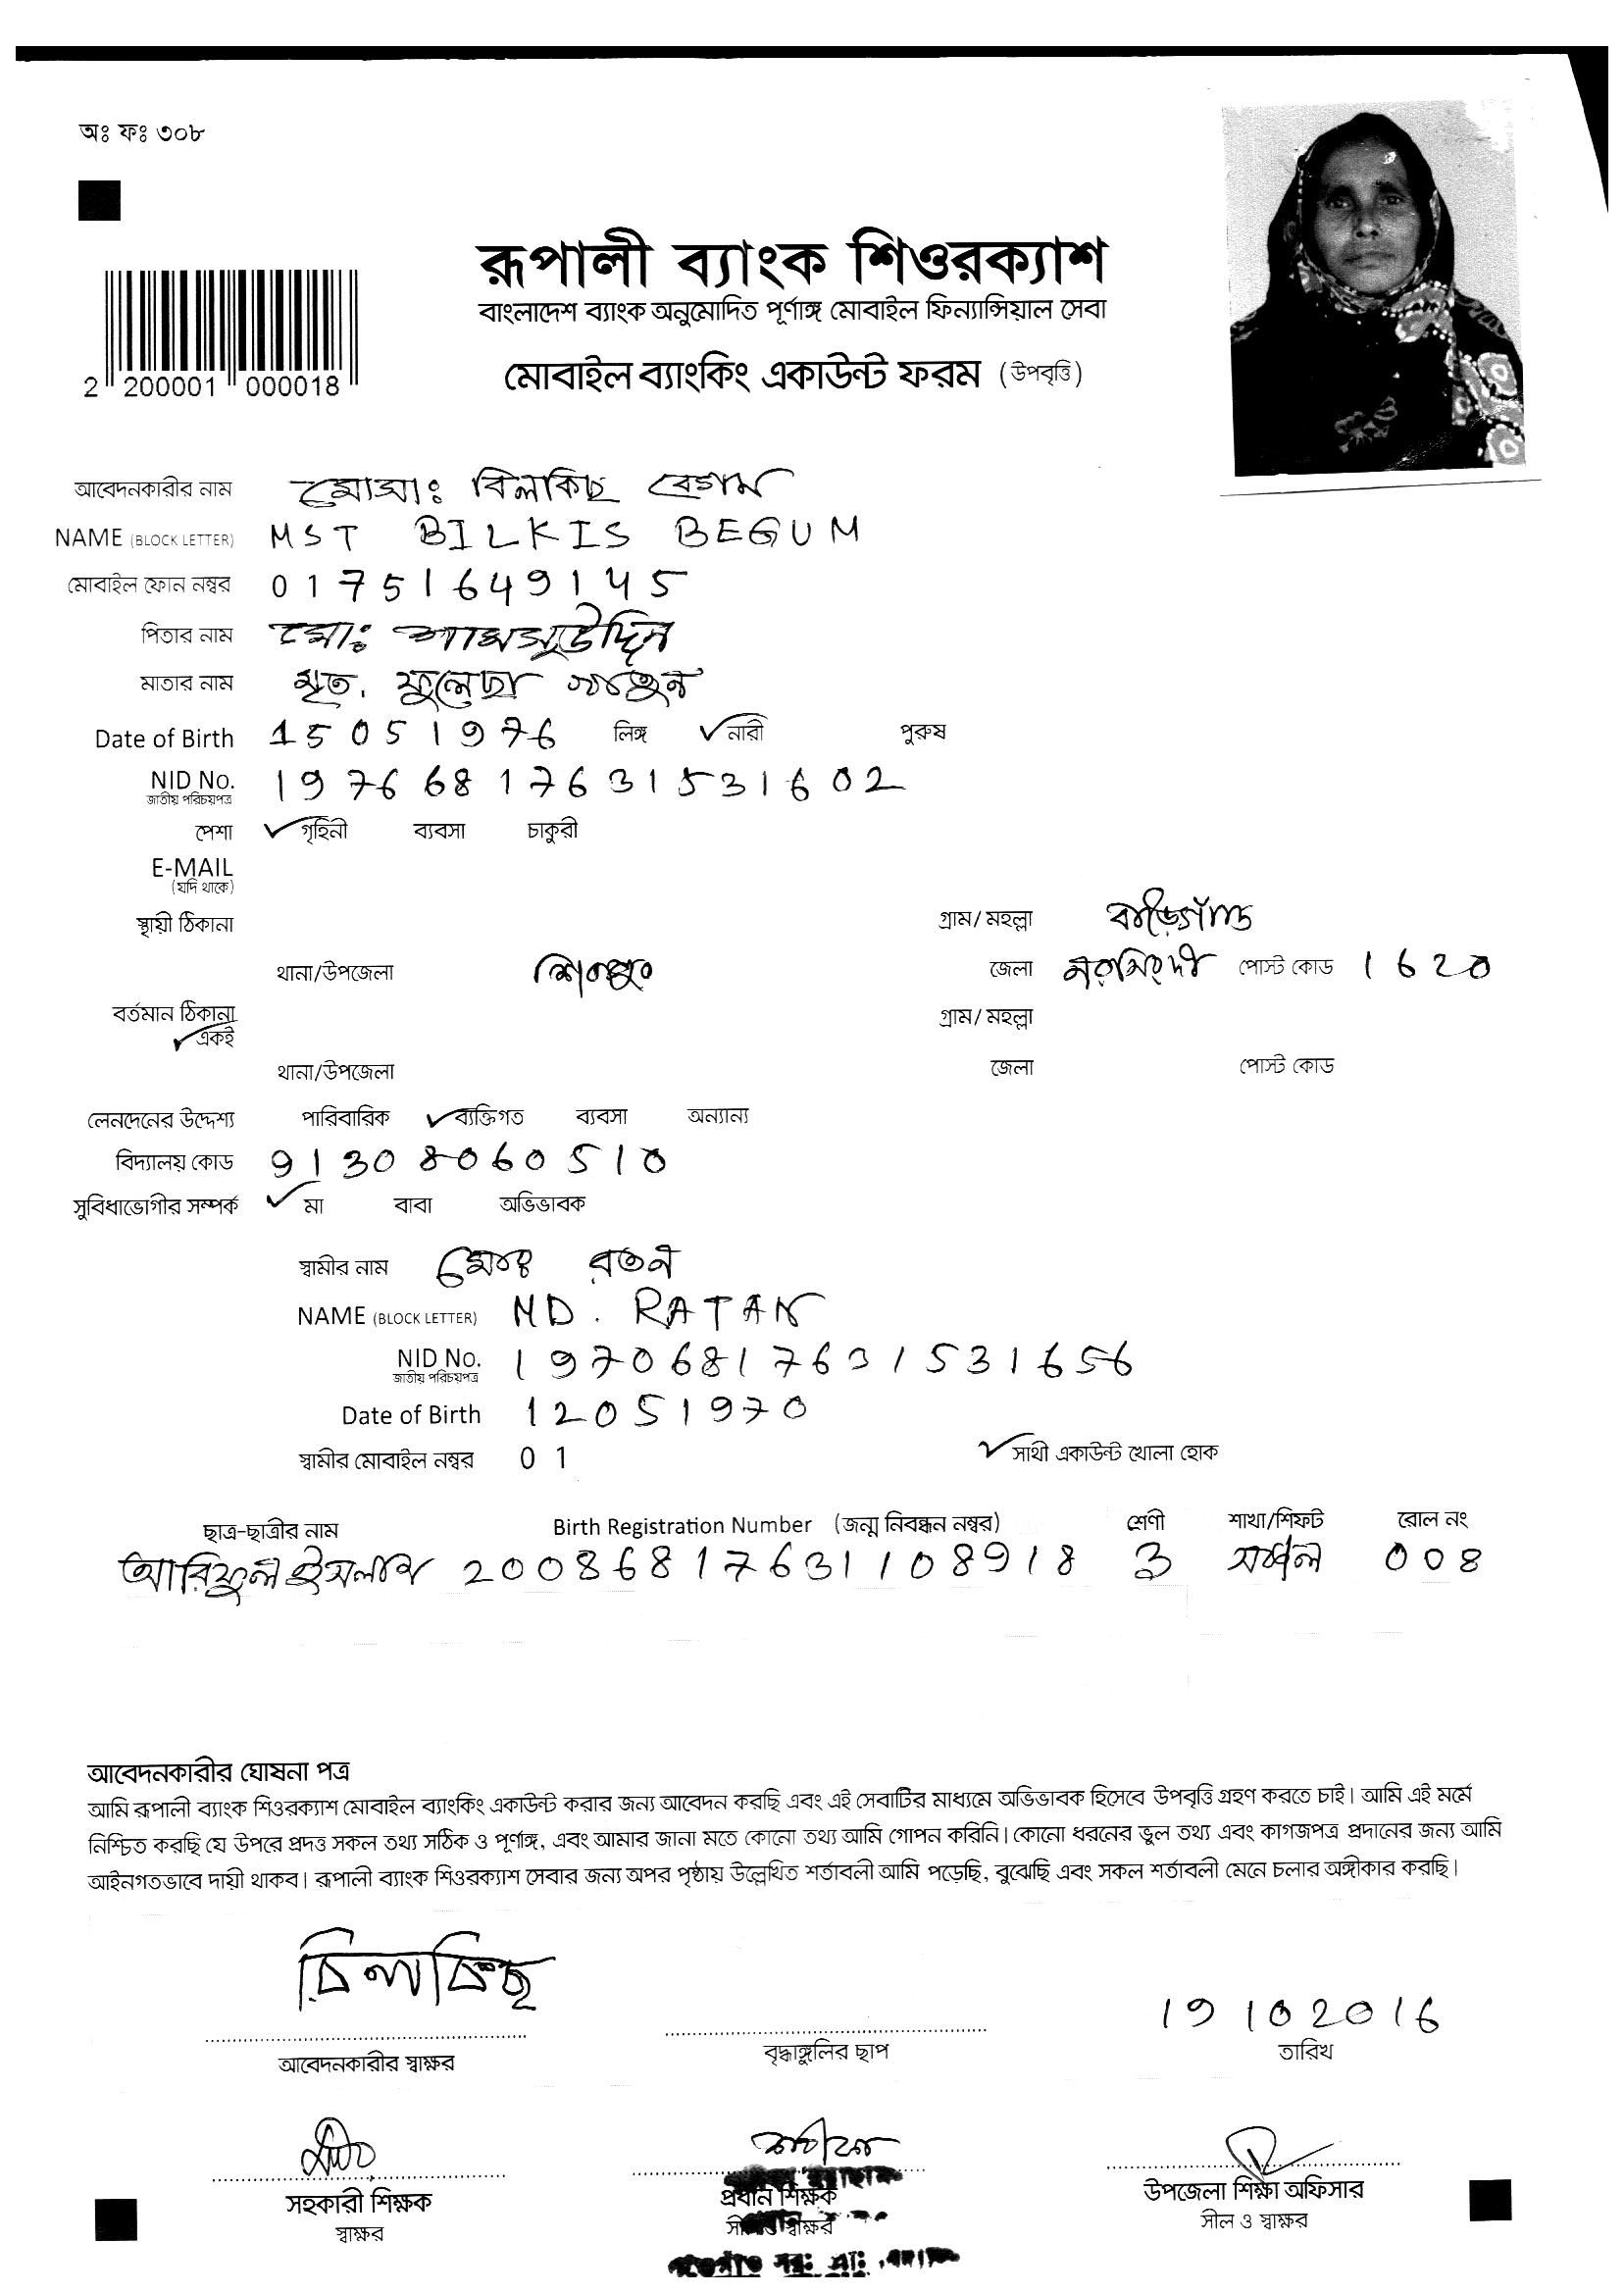 অঃ ফঃ ৩০৮
রূপালী ব্যাংক শিওরক্যাশ
বাংলাদেশ ব্যাংক অনুমোদিত পূর্ণাঙ্গ মোবাইল ফিন্যান্সিয়াল সেবা
মোবাইল ব্যাংকিং একাউন্ট ফরম (উপবৃত্তি)
2 200001 000018
আবেদনকারীর নাম মোসাঃ বিলকিছ বেগম
NAME (BLOCK LETTER) MST BILKIS BEGUM
মোবাইল ফোন নম্বর 01751649145
পিতার নাম মোঃ শামসুউদ্দিন
মাতার নাম মৃত. ফুলেছা খাতুন
Date of Birth 15051976 লিঙ্গ নারী পুরুষ
NID No. 19766817631531602
জাতীয় পরিচয়পত্র
পেশা গৃহিনী ব্যবসা চাকুরী
E-MAIL
(যদি থাকে)
স্থায়ী ঠিকানা গ্রাম/ মহল্লা
থানা/উপজেলা শিবপুর জেলা নরসিংদী পোস্ট কোড 1620
বর্তমান ঠিকানা গ্রাম/ মহল্লা
একই
থানা/উপজেলা জেলা পোস্ট কোড
লেনদেনের উদ্দেশ্য পারিবারিক ব্যক্তিগত ব্যবসা অন্যান্য
বিদ্যালয় কোড 91308060510
সুবিধাভোগীর সম্পর্ক মা বাবা অভিভাবক
স্বামীর নাম মোঃ রতন
NAME (BLOCK LETTER) MD. RATAN
NID No. 19706817631531656
জাতীয় পরিচয়পত্র
Date of Birth 12051970
স্বামীর মোবাইল নম্বর 01 সাথী একাউন্ট খোলা হোক
ছাত্র-ছাত্রীর নাম Birth Registration Number (জন্ম নিবন্ধন নম্বর) শ্রেণী শাখা/শিফট রোল নং
আরিফুল ইসলাম 20086817631108918 3 সকাল 008
আবেদনকারীর ঘোষনা পত্র
আমি রূপালী ব্যাংক শিওরক্যাশ মোবাইল ব্যাংকিং একাউন্ট করার জন্য আবেদন করছি এবং এই সেবাটির মাধ্যমে অভিভাবক হিসেবে উপবৃত্তি গ্রহণ করতে চাই। আমি এই মর্মে
নিশ্চিত করছি যে উপরে প্রদত্ত সকল তথ্য সঠিক ও পূর্ণাঙ্গ, এবং আমার জানা মতে কোনো তথ্য আমি গোপন করিনি। কোনো ধরনের ভুল তথ্য এবং কাগজপত্র প্রদানের জন্য আমি
আইনগতভাবে দায়ী থাকব। রূপালী ব্যাংক শিওরক্যাশ সেবার জন্য অপর পৃষ্ঠায় উল্লেখিত শর্তাবলী আমি পড়েছি, বুঝেছি এবং সকল শর্তাবলী মেনে চলার অঙ্গীকার করছি।
বিলকিছ 19102016
আবেদনকারীর স্বাক্ষর বৃদ্ধাঙ্গুলির ছাপ তারিখ
সহকারী শিক্ষক প্রধান শিক্ষক উপজেলা শিক্ষা অফিসার
স্বাক্ষর সীল ও স্বাক্ষর সীল ও স্বাক্ষর